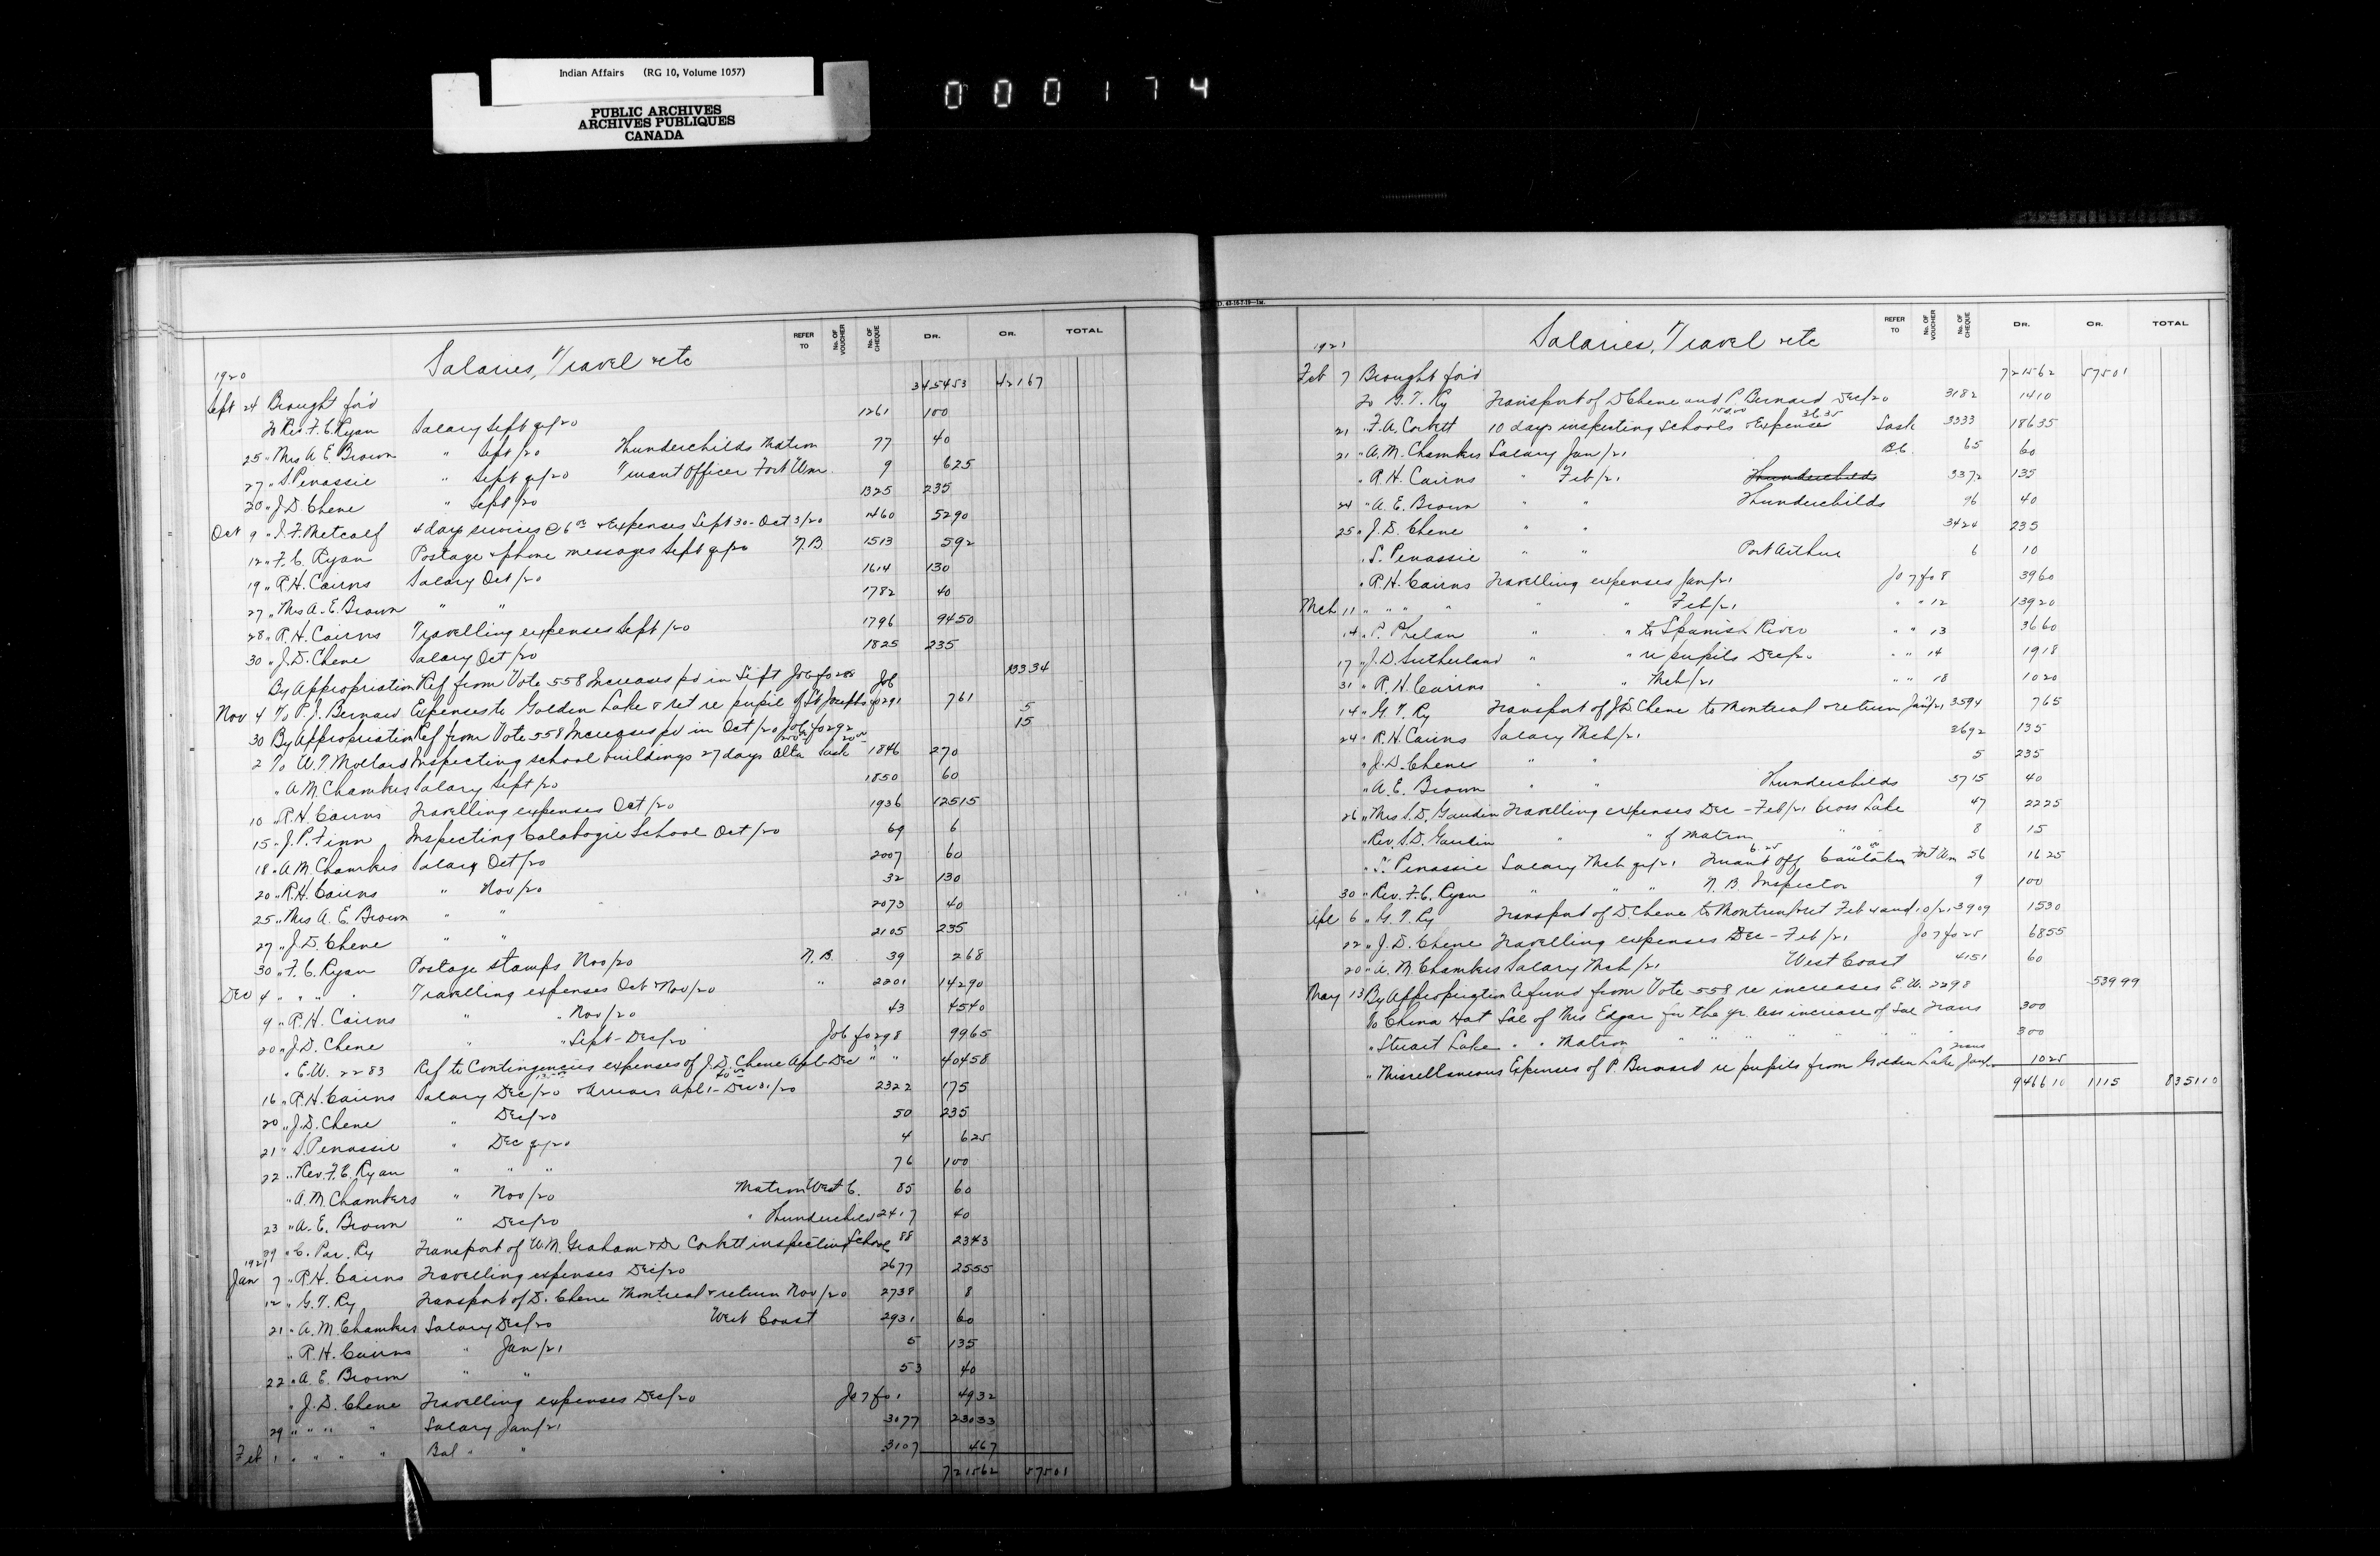 Indian Affairs (RG 10, Volume 1057)
PUBLIC ARCHIVES
ARCHIVES PUBLIQUES
CANADA
000174
REFER TO No. OF VOUCHER No. OF CHEQUE DR. CR. TOTAL
Salaries, Travel etc
1920
3454 53 421 67
Sept 24 Brought for'd
To Rev. F.C. Ryan Salary Sept qr/20 1261 100
25 " Mrs A E. Brown " Sept/20 Thunderchilds Matron 77 40
27 " S. Penassie " Sept qr/20 Truant Officer Fort Wm. 9 6 25
20 " J.D. Chene " Sept/20 1325 235
Oct 9 " J.F. Metcalf 4 days services @ 6 00 & Expenses Sept 30 - Oct 3/20 1460 52 90
12 " F.C. Ryan Postage & phone messages Sept qr/20 N.B 1513 5 92
19 " R.H. Cairns Salary Oct/20 1614 130
27 " Mrs A. E. Brown " " 1782 40
28 " R.H. Cairns Travelling expenses Sept/20 1796 94 50
30 " J.D. Chene Salary Oct/20 1825 235
By Appropriation Ref from Vote 558 Increases pd in Sept Jo 6 fo 288 133 34
Nov 4 To P.J. Bernard Expenses to Golden Lake & ret re pupil of St Josephs Jo6 fo291 7 61
5
30 By Appropriation Ref from Vote 558 Increases pd in Oct/20 Jo6 fo292 15
2 To W.T. Mollard Inspecting school buildings 27 days Alta Sask 1846 270
" A M. Chambers Salary Sept/20 1850 60
10 " R.H. Cairns Travelling expenses Oct/20 1936 125 15
15 " J.P. Finn Inspecting Calabogie School Oct/20 69 6
18 " A M. Chambers Salary Oct/20 2007 60
20 " R.H. Cairns " Nov/20 32 130
25 " Mrs A. E. Brown " " 2073 40
27 " J.D. Chene " " 2105 235
30 " F.C. Ryan Postage stamps Nov/20 N.B. 39 2 68
Dec 4 " " " Travelling expenses Oct & Nov/20 " 2201 142 90
9 " R.H. Cairns " " Nov/20 43 45 40
20 " J.D. Chene " " Sept - Dec/20 Jo6 fo298 99 65
" E.W. 2283 Ref to Contingencies expenses of J.D. Chene Apl-Dec " " 404 58
16 " R.H. Cairns Salary Dec/20 & Arrears Apl 1 - Dec 31/20 2322 175
20 " J.D. Chene " Dec/20 50 235
21 " S. Penassie " Dec qr/20 4 6 25
22 " Rev. F.C. Ryan " " " 76 100
" A.M. Chambers " Nov/20 Matron West C. 85 60
23 " A. E. Brown " Dec/20 " Thunderchild 2417 40
29 " C. Pac. Ry Transport of W.M. Graham & Dr Corbett inspecting Schools 88 23 43
1921
Jan 7 " R.H. Cairns Travelling expenses Dec/20 2677 25 55
12 " G.T. Ry Transport of D. Chene Montreal & return Nov/20 2738 8
21 " A. M. Chambers Salary Dec/20 West Coast 2931 60
" R.H. Cairns " Jan/21 5 135
22 " A. E. Brown " " 53 40
" J.D. Chene Travelling expenses Dec/20 Jo 7 fo 1 49 32
29 " " " Salary Jan/21 3077 230 33
Feb 1 " " " " Bal " " 3107 4 67
7215 62 575 01
D. 43-16-7-19-1M.
REFER TO No. OF VOUCHER No. OF CHEQUE DR. CR. TOTAL
1921 Salaries, Travel etc
Feb 7 Brought for'd 7215 62 575 01
To G.T. Ry Transport of D Chene and P Bernard Dec/20 3182 14 10
150 00 36 35
21 " F.A. Corbett 10 days inspecting Schools & Expenses Sask 3333 186 35
21 " A.M. Chambers Salary Jan/21 B.C. 65 60
" R.H. Cairns " Feb/21 Thunderchilds 3372 135
24 " A. E. Brown " " Thunderchilds 96 40
25 " J.D. Chene " " 3424 235
" S. Penassie " " Port Arthur 6 10
" R.H. Cairns Travelling expenses Jan/21 Jo 7 fo 8 39 60
Mch 11 " " " " " " Feb/21 " " 12 139 20
14 " P. Phelan " " to Spanish River " " 13 36 60
17 " J.D. Sutherland " " re pupils Dec/20 " " 14 19 18
31 " R.H. Cairns " " Mch/21 " " 18 10 20
14 " G.T. Ry Transport of J.D. Chene to Montreal & return Jan/21 3594 7 65
24 " R.H. Cairns Salary Mch/21 3692 135
" J.D. Chene " " 5 235
" A. E. Brown " " Thunderchilds 3715 40
26 " Mrs S.D. Gaudin Travelling expenses Dec - Feb/21 Cross Lake 47 22 25
" Rev. S.D. Gaudin " " of Matron " " 8 15
6 25 10 00
" S. Penassie Salary Mch qr/21 Truant Off Fort Wm 56 16 25
30 " Rev. F.C. Ryan " " " N.B. Inspector 9 100
Apl 6 " G.T. Ry Transport of D. Chene to Montreal & ret Feb 4 and 10/21 3909 15 30
22 " J.D. Chene Travelling expenses Dec - Feb/21 Jo 7 fo 25 68 55
20 " A. M. Chambers Salary Mch/21 West Coast 4151 60
May 13 By Appropriation Refund from Vote 558 re increases E.W. 2298 539 99
To China Hat Sal of Mrs Edgar for the yr. less increase of Sal Trans 300
" Stuart Lake " " Matron " " " " " " " 300
Trans
" Miscellaneous Expenses of P. Bernard re pupils from Golden Lake Jan/21 10 25
9466 10 1115 8351 10